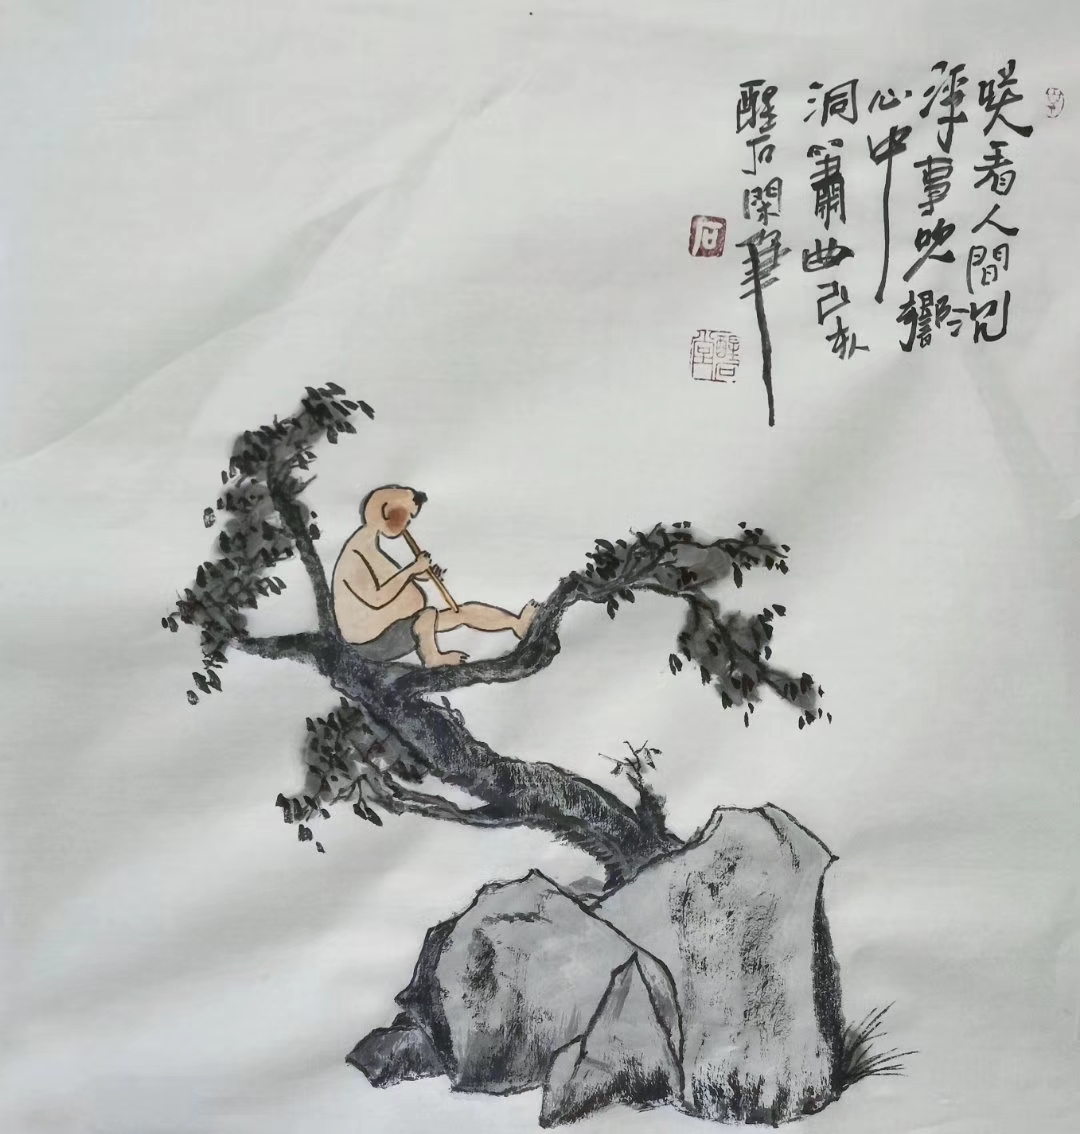 笑看人間沉
浮事吹響
心中
洞簫曲
醒石閑筆
石
醒石堂